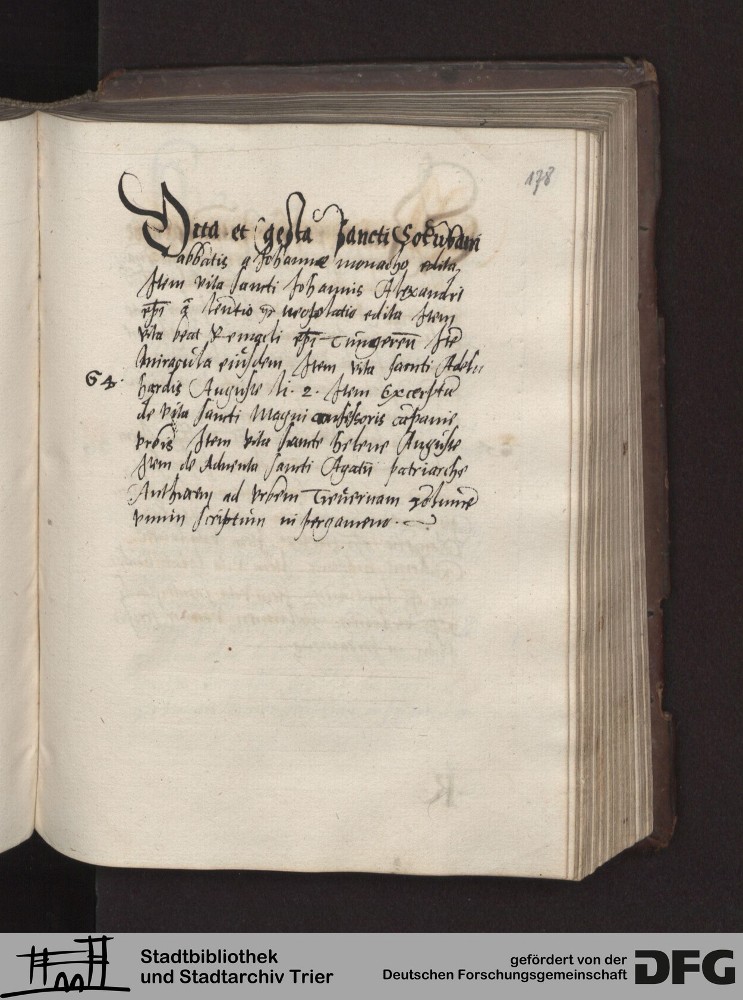 178
Vita et gesta Sancti Columbani
abbatis a Johanne monacho edita
Item vita sancti Johannis Alexandri
epi a leontio edita Item
vita beati Remagli epi Tungeren Ite
miracula eiusdem Item vita sancti Adel
64.
hardis Auguste li. 2. Item Excerpta
de vita sancti Magni confessoris
vrbis Item vita sancte helene Auguste
Item de Adventu sancti Agatii patriarche
ad vrbem Treuernam
vnum scriptum in pergameno.
Stadtbibliothek
und Stadtarchiv Trier
gefördert von der
Deutschen Forschungsgemeinschaft
DFG